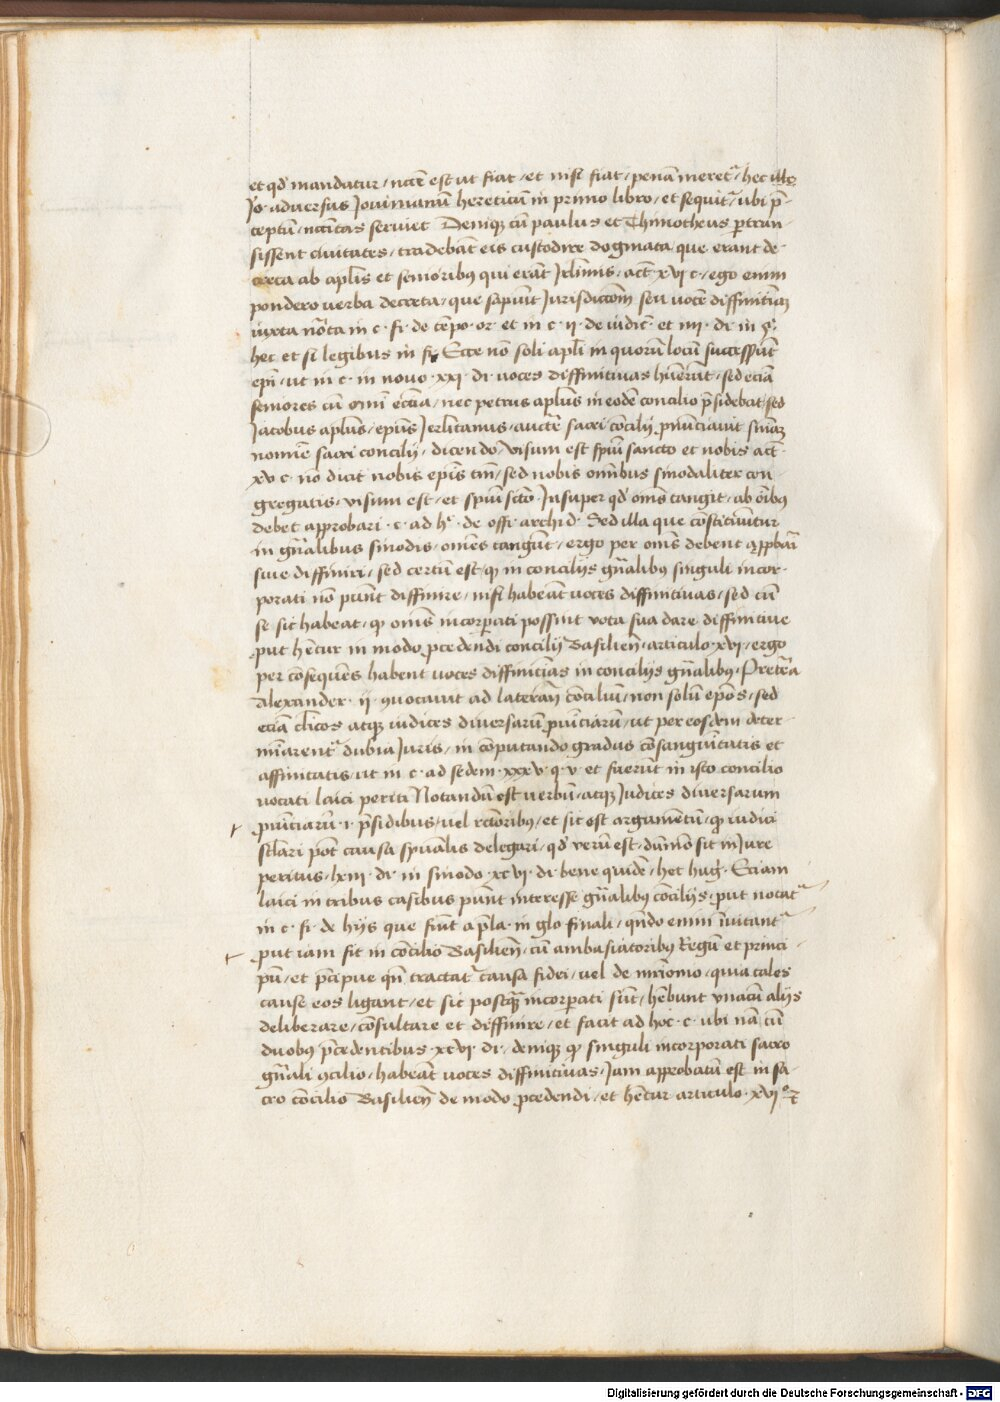 et qd' mandatur / necẽ est ut fiat / et nisi fiat / penã meret᷑ / hec ille
Jo. aduersus Jouinianũ hereticũ in primo libro / et sequit᷑ / ubi p̃-
ceptũ / nccĩtas seruiet Deniqꝫ cũ paulus et Thimotheus ꝑtran-
sissent ciuitates / tradebãt eis custodire dogmata que erant de-
creta ab apl̃is et senioribꝰ qui erãt Jrl̃imis / act̃ xvi c̃ / ego enim
pondero uerba decreta / que sapiũt Jurisdictõem seu uocẽ diffinitiuã
iuxta nõta in c · fi · de tẽpo · or · et in c · ij · de iudic̃ · et iiij · di · in §
hec et si legibus in fi · Ecce nõ soli apl̃i in quorũ locũ successerũt
epĩ / ut in c · in nouo · xxi · di uoces diffinitiuas huerũt / sed eciã
seniores cũ omĩ eccl̃ia / nec petrus apl̃us in eodẽ concilio p̃sidebat / sed
Jacobus apl̃us / epũs Jerl̃itanus / auctẽ sacri cõcilij ꝓnũciauit sniãꝫ
nomĩe sacri concilij / dicendo / Visum est spũi sancto et nobis act̃
xv c̃ nõ dicit nobis epĩs tm̃ / sed nobis omĩbus sinodaliter con-
gregatis / uisum est / et spũi scõ Insuper qd' omẽs tangit / ab õibꝰ
debet approbari · c · ad hͨ · de offi · archid · Sed illa que cõstituũtur
in gñalibus sinodis / omẽs tangũt / ergo per omẽs debent approbari
siue diffiniri / sed certũ est / ꝙ in concilijs gñalibꝰ singuli incor-
porati nõ pñt diffinire / nisi habeãt uoces diffinitiuas / sed cũ
se sic habeat / ꝙ omẽs incorꝑati possint uota sua dare diffinitiue
ꝓut hẽtur in modo ꝓcedendi concilij Basilieñ / articulo xvi / ergo
per cõsequẽs habent uoces diffinitiuas in concilijs gñalibꝰ · Pretea
Alexander · ij · ꝯuocauit ad laterañ cõciliũ / non solũ epõs / sed
eciã clĩcos atqꝫ iudices diuersarũ ꝓuĩciarũ / ut per eosdem deter-
minarent᷑ dubia Juris / in cõputando gradus cõsanguĩtatis et
affinitatis / ut in c · ad sedem · xxxv · q · v · et fuerũt in isto concilio
uocati laici periti Notandũ est uerbũ / atqꝫ Judices diuersarum
ꝓuĩciarũ · i · p̃sidibus / uel rctoribus / et sic est argumẽtũ / ꝙ iudici
sclãri põt causa spũalis delegari / qd' uerũ est / dũmõ sit in Jure
peritus / lxiii · di · in sinodo · xcvi · di · bene quidẽ / hec hug̃ · Eciam
laici in tribus casibus pñt interesse gñalibꝰ cõcilijs / ꝓut nocat᷑
in c · fi · de hijs que fiũt a p̃la in glo finali / qñdo enim ĩuitant᷑
ꝓut iam fit in cõcilio Basilieñ / cũ ambasiatoribꝰ Regũ et princi-
pũ / et p̃cipue qñ tractat᷑ causa fidei / uel de mr̃iomo / quia tales
cause eos ligant / et sic postqꝫ incorꝑati sũt / hẽbunt vnacũ alijs
deliberare / cõsultare et diffinire / et facit ad hoc · c · ubi nã cũ
duobꝰ p̃cedentibus · xcvi · di · deniqꝫ ꝙ singuli incorporati sacro
gñali ꝯcilio / habeãt uoces diffinitiuas / Jam approbatũ est in sa-
cro cõcilio Basilieñ de modo ꝓcedendi / et hẽtur articulo · xvi°